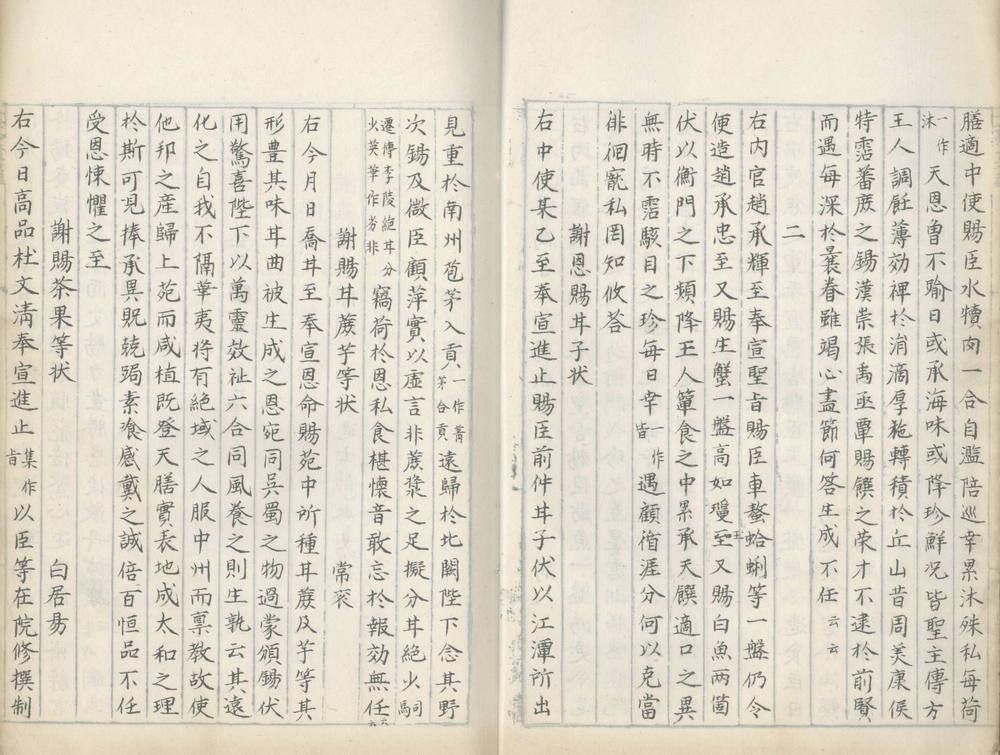 膳適中使賜臣水犢向一合自濫陪巡幸累沐殊私每荷
一作沐天恩曾不踰日或承海味或降珍鮮况皆聖主傳方
王人調飪薄効裨於涓滴厚施轉積於丘山昔周美康侯
特霑蕃庶之錫漢崇張禹亟覃賜饌之荣才不逮於前賢
而遇每深於曩眷雖竭心盡節何答生成不任云云
二
右内官趙承輝至奉宣聖旨賜臣車螯蛤蜊等一盤仍令
便造趙承忠至又賜生蟹一盤高如璗至又賜白魚兩箇
伏以衡門之下頻降王人簞食之中累承天饌適口之異
無時不霑駭目之珍每日幸一作皆遇顧循涯分何以克當
徘徊寵私罔知攸荅
謝恩賜甘子状
右中使某乙至奉宣進止賜臣前件甘子伏以江潭所出
見重於南州苞茅入貢一作菁茅合貢遠歸於北闕陛下念其野
次錫及微臣顧萍實以虛言非蔗漿之足擬分甘絶火嗣
遷傳李陵絶甘分火英華作芳非竊荷於恩私食椹懷音敢忘於報効無任云云
謝賜甘蔗芋等状 常衮
右今月日喬甘至奉宣恩命賜苑中所種甘蔗及芋等其
形豊其味甘曲被生成之恩宛同呉蜀之物過蒙頒錫伏
用驚喜陛下以萬靈效祉六合同風養之則生孰云其遠
化之自我不隔華夷将有絶域之人服中州而禀教故使
他邦之産歸上苑而咸植既登天膳實表地成太和之理
於斯可見捧承異貺兢跼素飡感戴之誠倍百恒品不任
受恩悚懼之至
謝賜茶果等状 白居易
右今日高品杜文淸奉宣進止集作旨以臣等在院修撰制